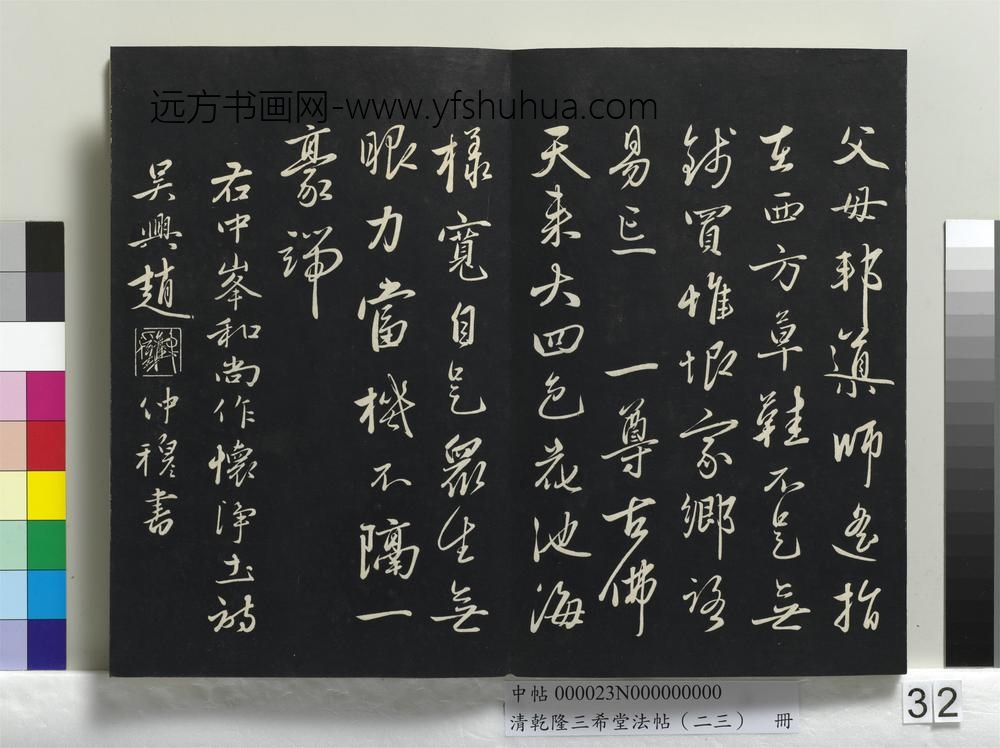 远方书画网-www.yfshuhua.com
父母邦導師遙指
在西方草鞋不是無
錢買惟恨家鄉路
易忘 一尊古佛
天來大四色花池海
樣寬自是眾生無
眼力當機不隔一
毫端
右中峯和尚作懷淨土詩
吳興趙 仲穆書
中帖 000023N000000000
清乾隆三希堂法帖（二三） 冊
32